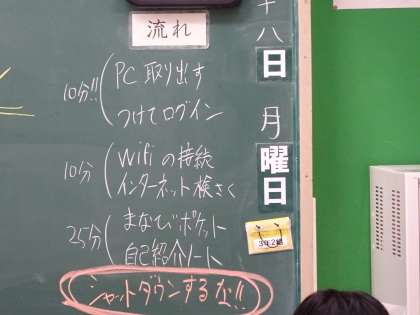 流れ
10分!!
PC取り出す
つけてログイン
10分
Wifiの接続
インターネット検さく
25分
まなびポケット
自己紹介ノート
シャットダウンするな!!
十八日
月曜日